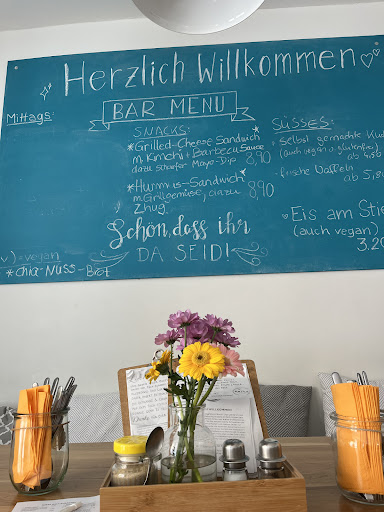 Herzlich Willkommen
Mittags:
BAR MENU
SNACKS:
*Grilled-Cheese Sandwich
m. Kimchi + Barbecu Sauce
dazu scharfer Mayo-Dip 8,90
*Hummus-Sandwich
m. Grillgemüse, dazu 8,90
Zhug
Schön, dass ihr
DA SEID!
v) = vegan
*Chia-Nuss-Brot
SÜSSES:
selbst gemachte
(auch vegan o. glutenfrei)
ab
frische Waffeln
ab 5,80
Eis am
(auch vegan)
3,20